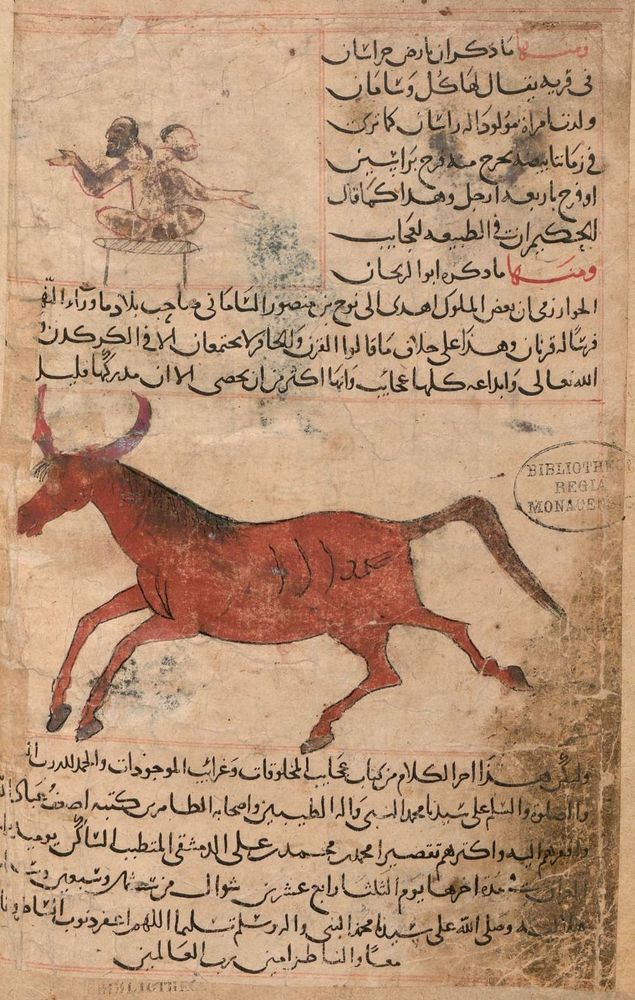 ومنها ما ذكر ان بارض خراسان
فى قرية يقال لها كل وشامان
ولدت امراة مولودا له راسان كما ترى
فى زماننا بيضة يخرج منه فرخ براسين
او فرخ باربعة ارجل وهذا كما قال
الحكيم ان فى الطبيعة لعجايب
ومنها ما ذكره ابو الريحان
الخوارزمى ان بعض الملوك اهدى الى نوح بن منصور السامانى صاحب بلاد ما ورآء النهر
فرسًا له قرنان وهذا على خلاف ما قالوا القرن والحافر لا يجتمعان الا فى الكركدن و
الله تعالى وابداعه كلها عجايب وانها اكثر من ان تحصى الا ان مدركها قليل
BIBLIOTHECA
REGIA
MONACENSIS
وليكن هذا اخر الكلام من كتاب عجايب المخلوقات وغرائب الموجودات والحمد لله رب
والصلوة والسلم على سيدنا محمد النبى واله الطيبين واصحابه الطاهرين كتبه اضعف عباد الله
وافقرهم اليه واكثرهم تقصيرا محمد بن محمد بن على الدمشقى المتطبب الساكن يوميذ
اخرها يوم الثلثا رابع عشرين شوال من شهور
وصلى الله على سيدنا محمد النبى واله وسلم تسليما اللهم اغفر ذنوب
معا والناظر امين يرب العالمين
BIBLIOTHECA